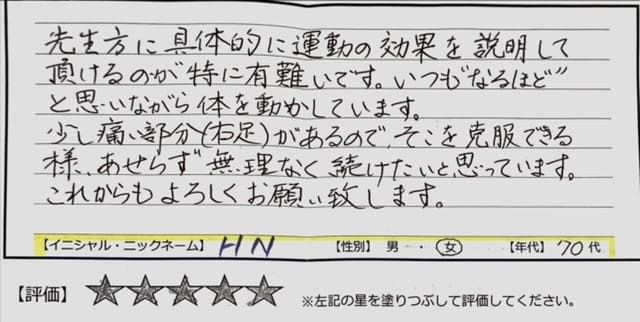 先生方に具体的に運動の効果を説明して
頂けるのが特に有難いです。いつも"なるほど"
と思いながら体を動かしています。
少し痛い部分(右足)があるので、そこを克服できる
様、あせらず無理なく続けたいと思っています。
これからもよろしくお願い致します。
【イニシャル・ニックネーム】 HN 【性別】 男 ・ 女 【年代】 70代
【評価】 ★★★★★ ※左記の星を塗りつぶして評価してください。